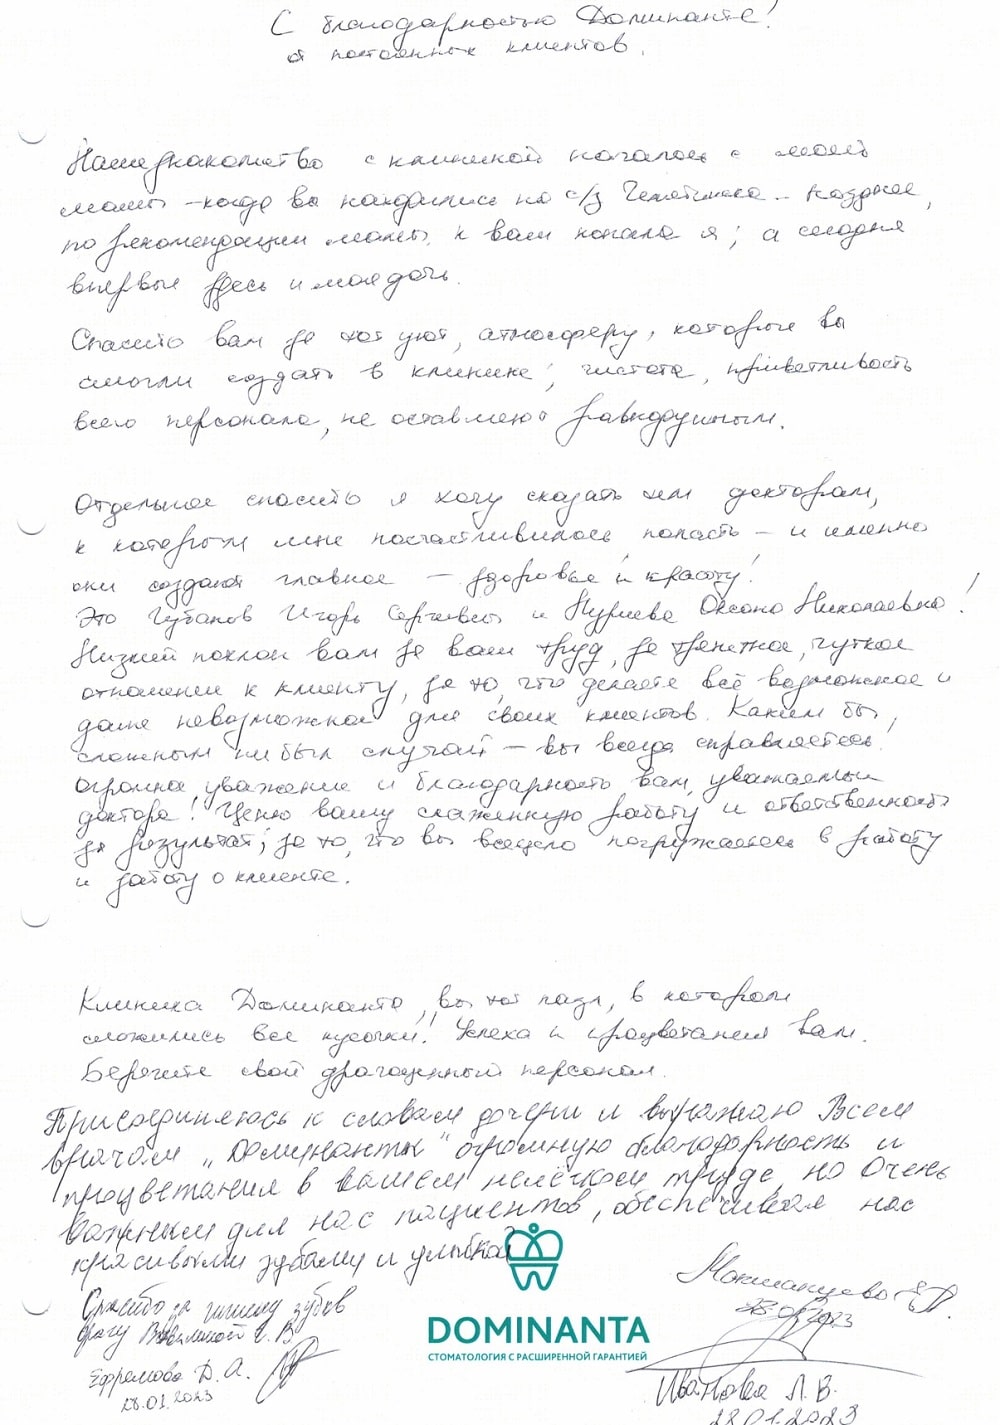 С благодарностью Доминанте!
от постоянных клиентов.
Наше знакомство с клиникой началось с моей
мамы – когда вы находились на с/з Чемитоква. Позднее,
по рекомендации мамы, к вам попала я; а сегодня
впервые здесь и моя дочь.
Спасибо вам за тот уют, атмосферу, которые вы
смогли создать в клинике; чистота, приветливость
всего персонала, не оставляют равнодушным.
Отдельное спасибо я хочу сказать тем докторам,
к которым мне посчастливилось попасть – и именно
они создают главное – здоровье и красоту!
Это Губанов Игорь Сергеевич и Нуриева Оксана Николаевна!
Низкий поклон вам за ваш труд, за трепетное, чуткое
отношение к клиенту, за то, что делаете всё возможное и
даже невозможное для своих клиентов. Каким бы,
сложным ни был случай – вы всегда справляетесь!
Огромное уважение и благодарность вам, уважаемые
доктора! Ценю вашу слаженную работу и ответственность
за результат; за то, что вы всецело погружаетесь в работу
и заботу о клиенте.
Клиника Доминанта, вы тот пазл, в котором
сложились все кусочки! Успеха и процветания вам.
Берегите свой драгоценный персонал.
Присоединяюсь к словам дочери и выражаю Всем
врачам „Доминанты" огромную благодарность и
процветания в вашем нелёгком труде, но Очень
важным для нас пациентов, обеспечивая нас
красивыми зубами и улыбкой
Спасибо за гигиену зубов
врачу В. В.
Ефремова Д. А.
28.01.2023
28.01.2023
Иванова Л. В.
28.01.2023
DOMINANTA
СТОМАТОЛОГИЯ С РАСШИРЕННОЙ ГАРАНТИЕЙ